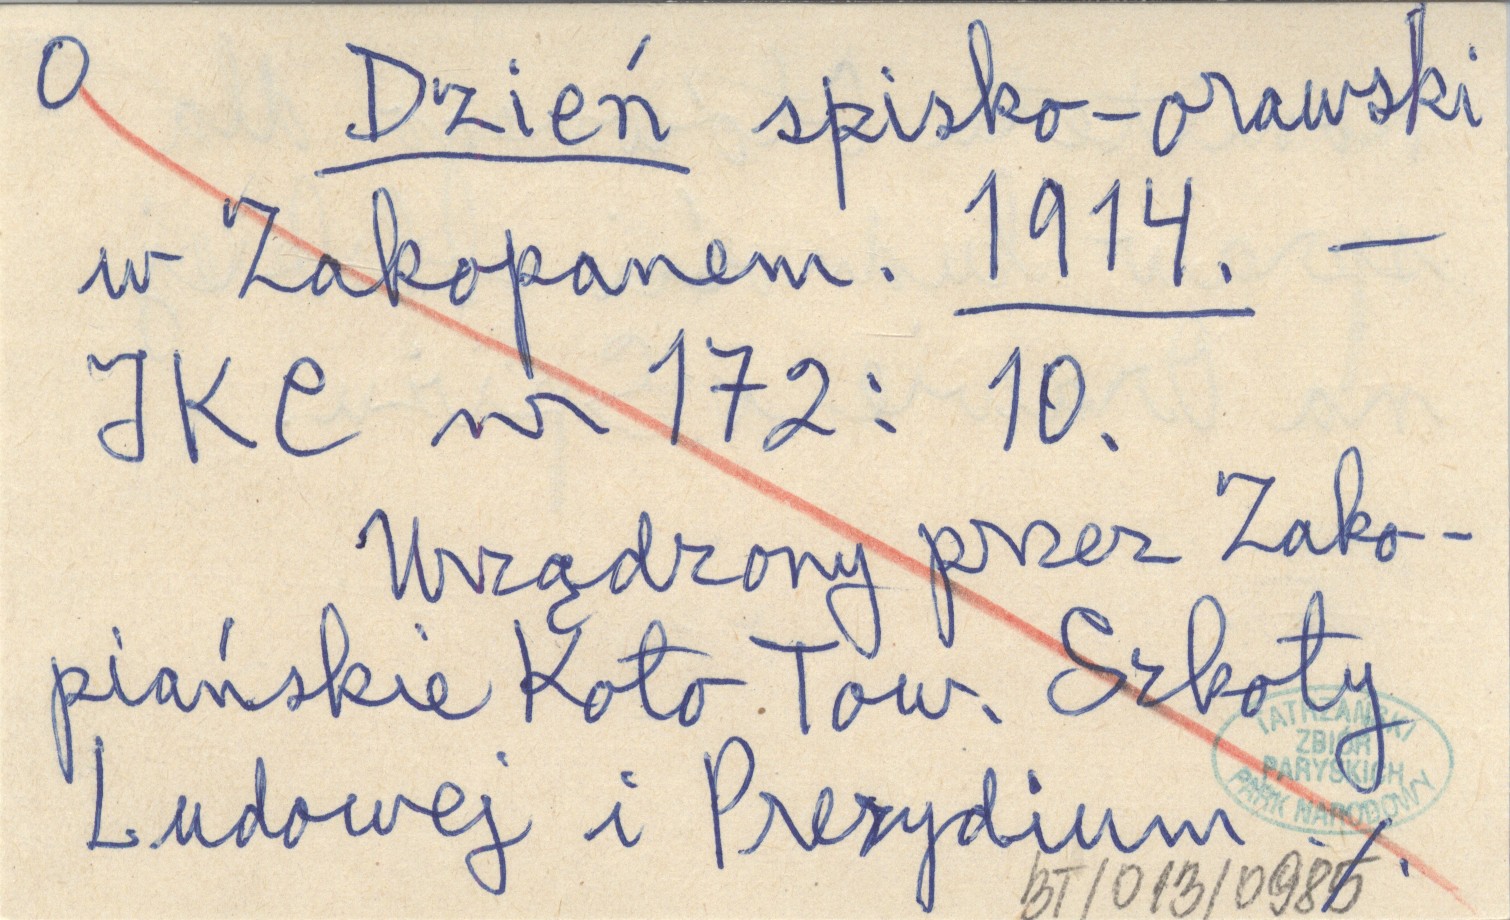 O Dzień spisko-orawski
w Zakopanem. 1914. —
JKC nr 172: 10.
Urządzony przez Zako-
piańskie Koło Tow. Szkoły
Ludowej i Prezydium ./.
TATRZAŃSKI
ZBIÓR
PARYSKICH
PARK NARODOWY
BT/013/0985